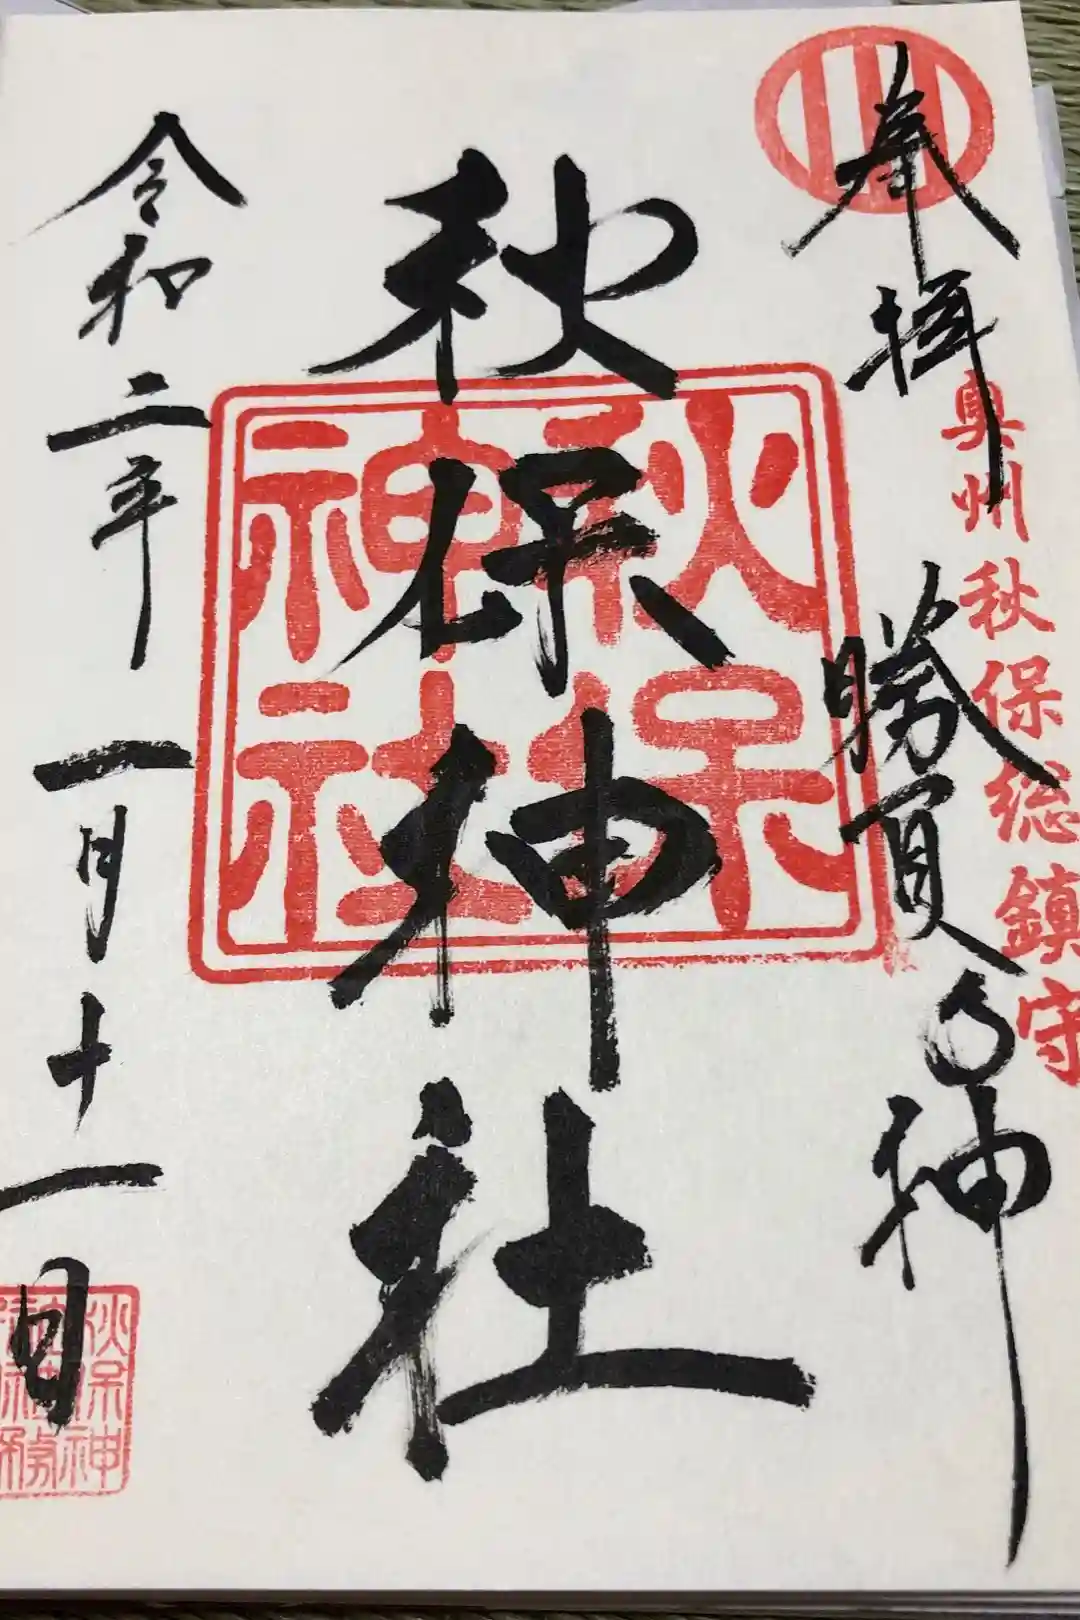 奉拝
奥州秋保総鎮守
勝負の神
秋保神社
秋保
神社
令和二年一月十一日